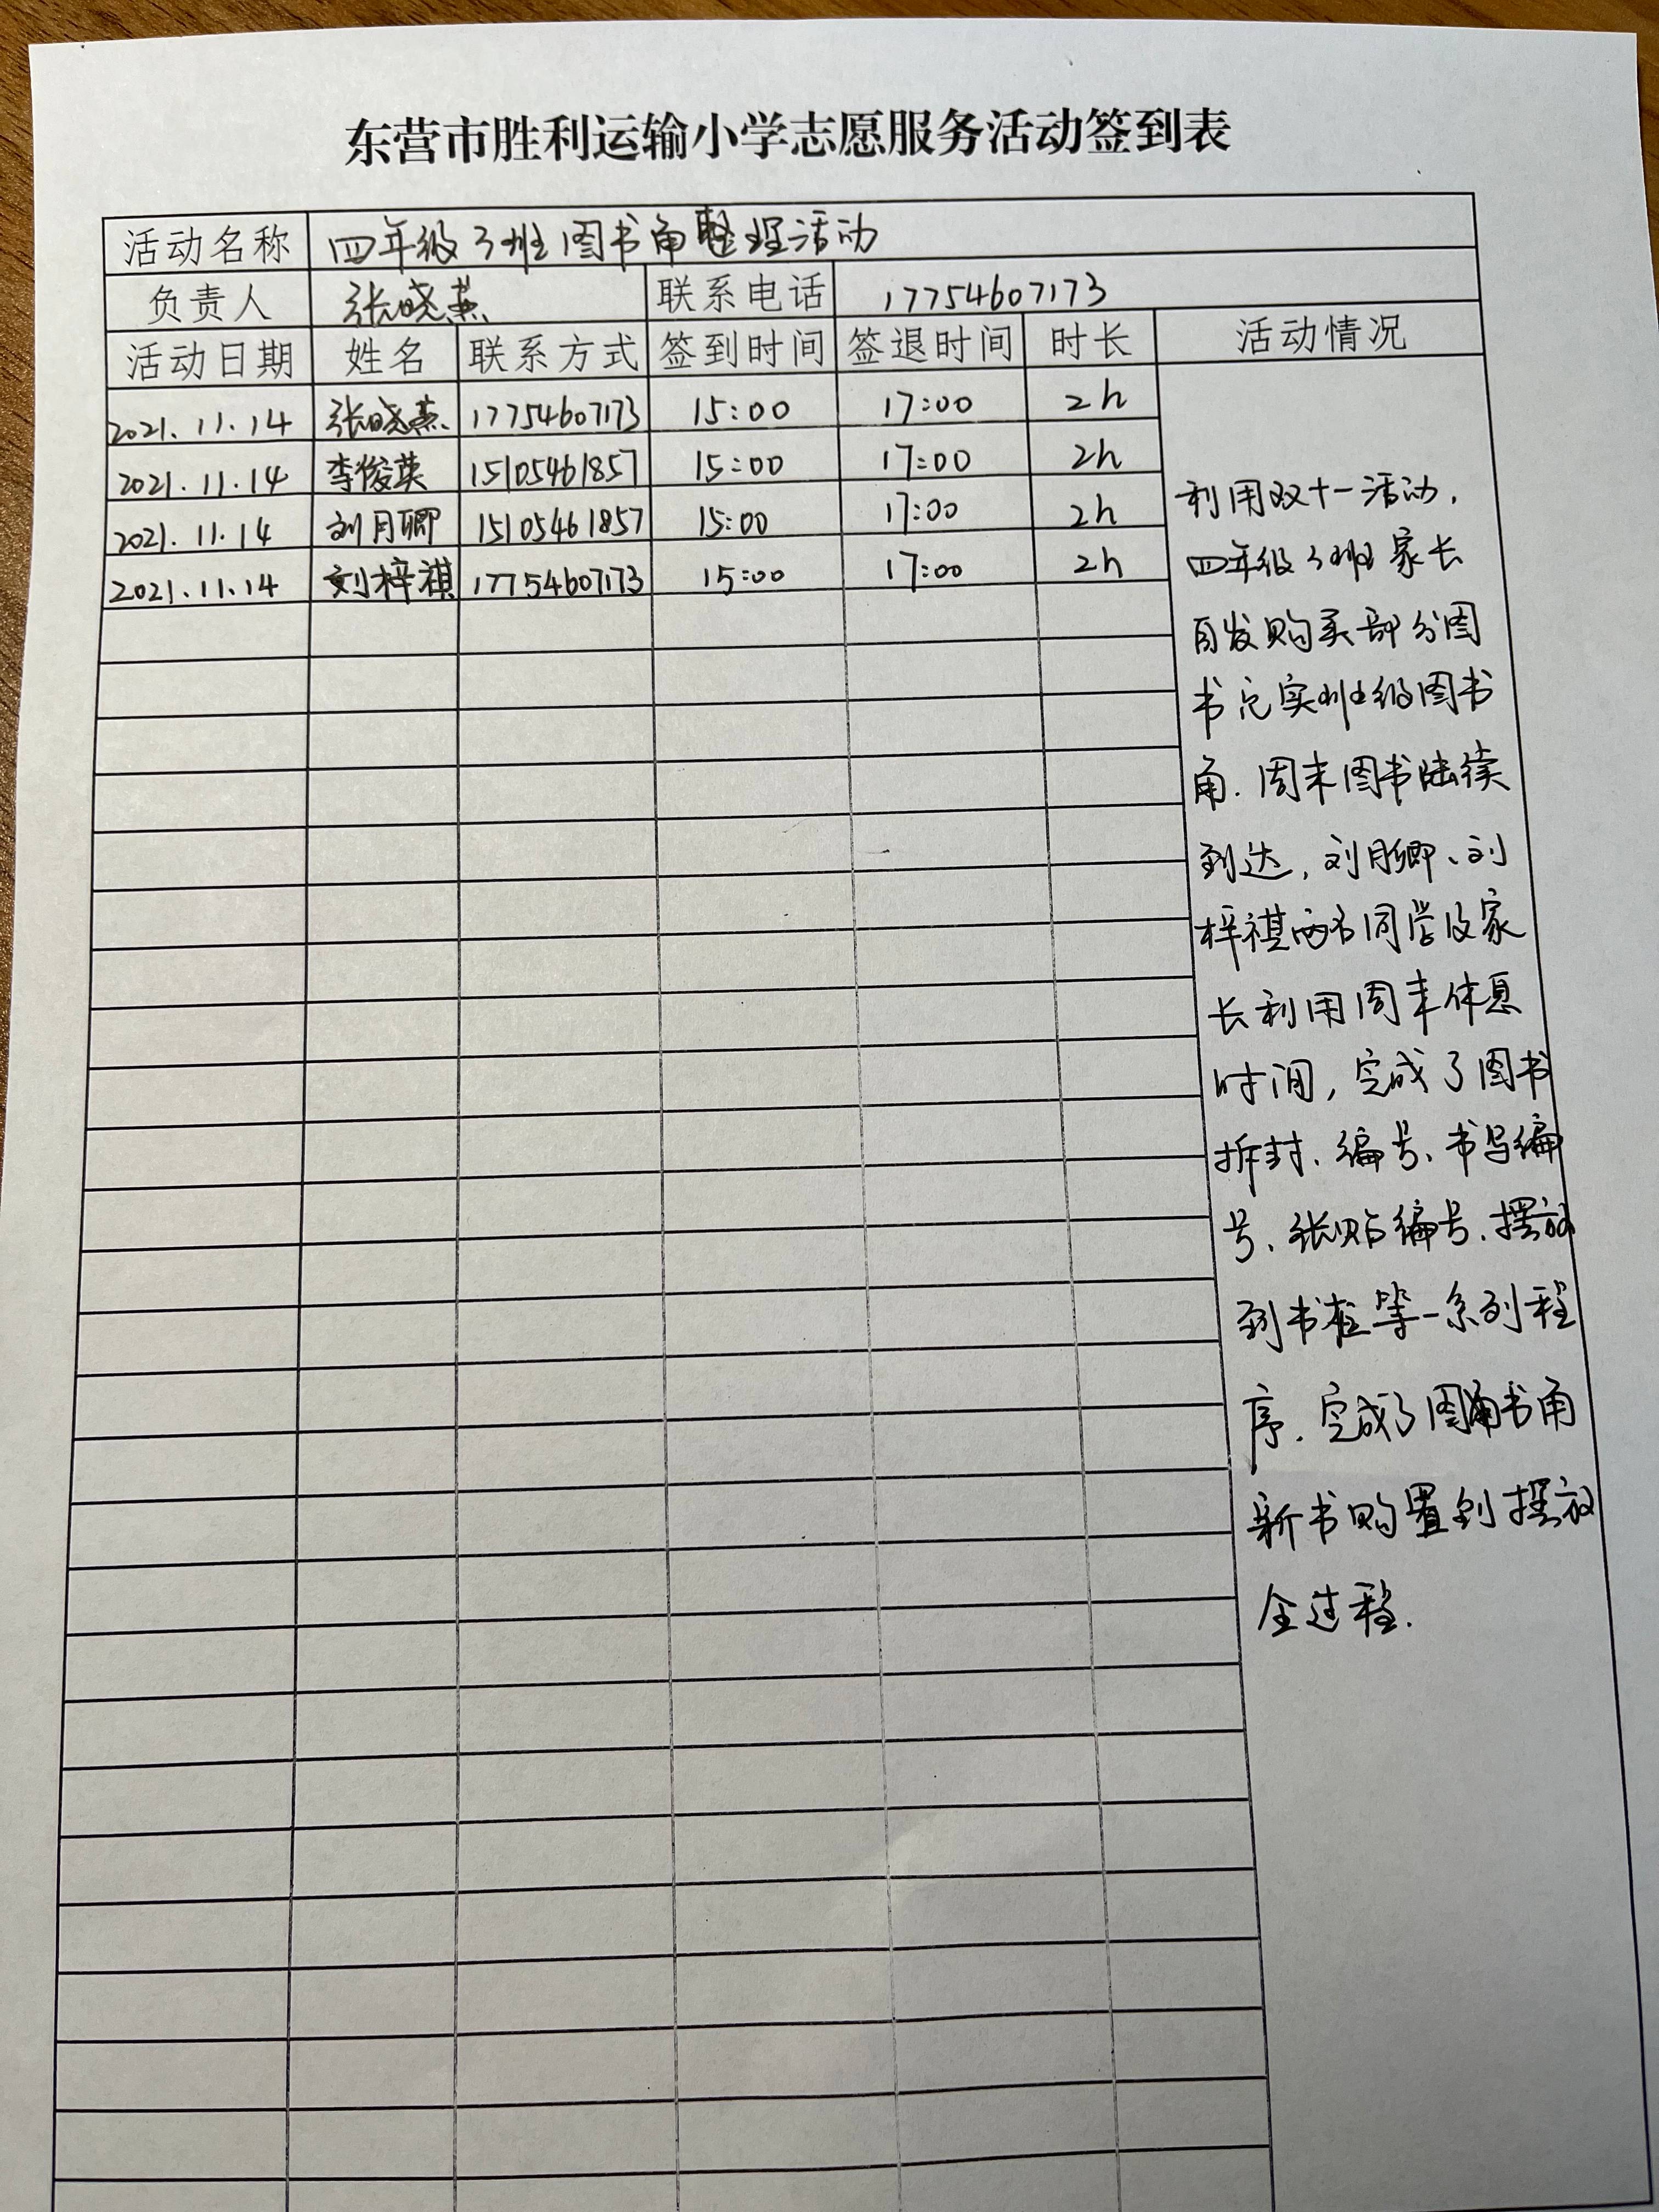 东营市胜利运输小学志愿服务活动签到表
活动名称 四年级3班图书角整理活动
负责人 张晓燕 联系电话 17754607173
活动日期 姓名 联系方式 签到时间 签退时间 时长 活动情况
2021.11.14 张晓燕 17754607173 15:00 17:00 2h
2021.11.14 李俊英 15105461857 15:00 17:00 2h
2021.11.14 刘月卿 15105461857 15:00 17:00 2h
2021.11.14 刘梓祺 17754607173 15:00 17:00 2h
利用双十一活动,
四年级3班家长
自发购买部分图
书充实班级图书
角.周末图书陆续
到达,刘月卿、刘
梓祺两名同学及家
长利用周末休息
时间,完成了图书
拆封、编号、书写编
号、张贴编号、摆放
到书柜等一系列程
序.完成了图书角
新书购置到摆放
全过程.